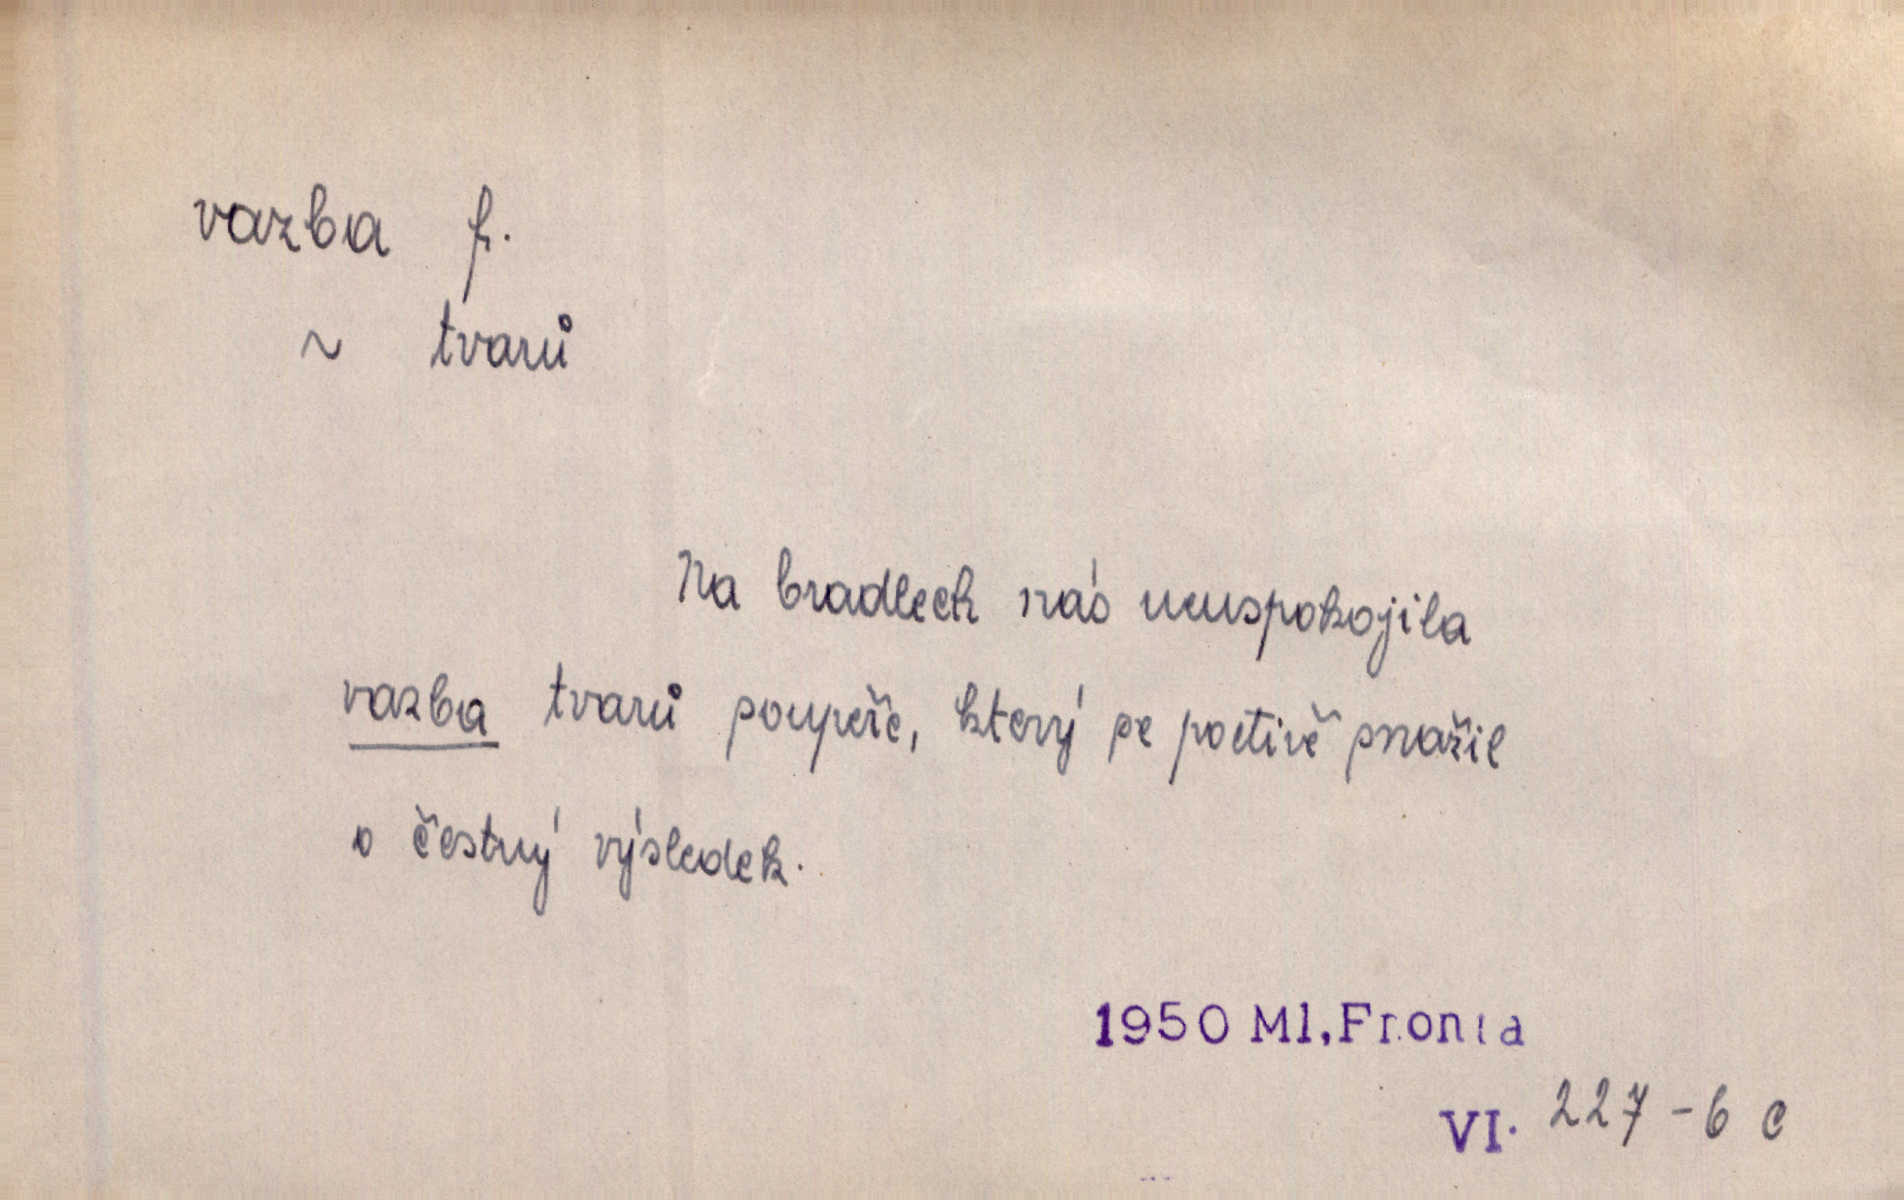 vazba f.
~ tvarů
Na bradlech nás neuspokojila
vazba tvarů soupeře, který se poctivě snažil
o čestný výsledek.
1950 Ml. Fronta
VI. 227-6 c